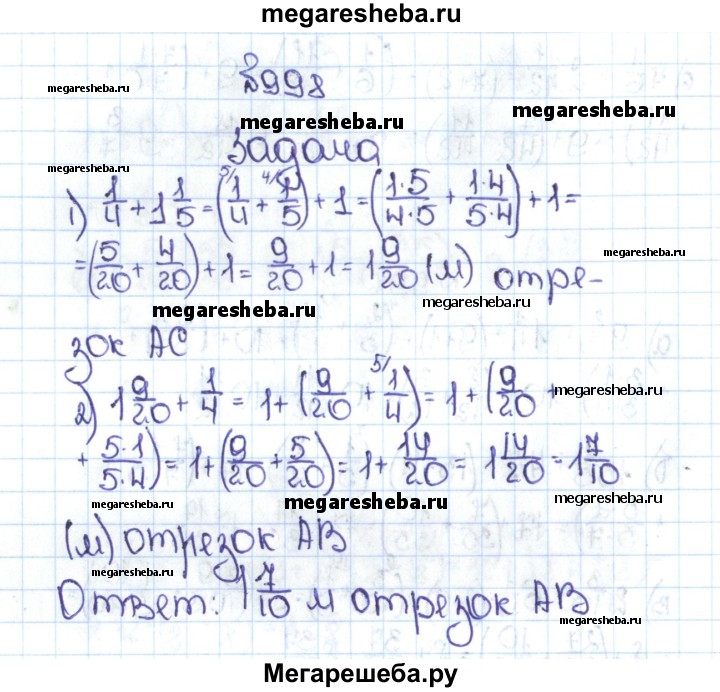 megaresheba.ru
№998
megaresheba.ru
megaresheba.ru
megaresheba.ru
Задача
megaresheba.ru
1) 1/4 + 1 1/5 = (5/ 1/4 + 4/ 1/5) + 1 = (1·5/4·5 + 1·4/5·4) + 1 =
= (5/20 + 4/20) + 1 = 9/20 + 1 = 1 9/20 (м) отре-
megaresheba.ru
megaresheba.ru
megaresheba.ru
зок АС
2) 1 9/20 + 1/4 = 1 + (9/20 + 5/ 1/4) = 1 + (9/20 +
megaresheba.ru
+ 5·1/5·4) = 1 + (9/20 + 5/20) = 1 + 14/20 = 1 14/20 = 1 7/10
megaresheba.ru
megaresheba.ru
megaresheba.ru
(м) отрезок АВ
megaresheba.ru
Ответ: 1 7/10 м отрезок АВ
megaresheba.ru
Мегарешеба.ру